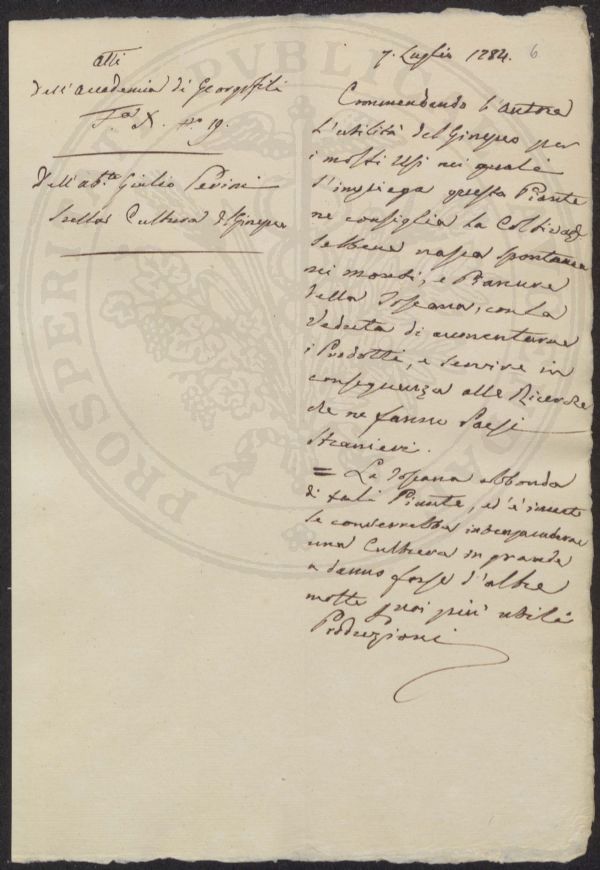 Atti
Dell'Accademia di Georgofili
Fa X. no 19.
Dell'abte. Giulio Perini
Sulla Cultura del Ginepro
7. Luglio 1784. 6
Commendando l'Autore
l'utilità del Ginepro per
i molti usi nei quali
s'impiega questa Piante
ne consiglia la Coltivaze
sebbene nasca spontanea
nei monti, e Pianure
della Toscana, con la
veduta di aumentarne
i Prodotti, e servire in
conseguenza alle Ricerche
che ne fanno Paesi
stranieri.
= La Toscana abbonda
di tali Piante, ed è incerto
se converrebbe intraprenderne
una Cultura in grande
a danno forse d'altre
molte poi più utili
Produzioni
PROSPERI PUBLICA